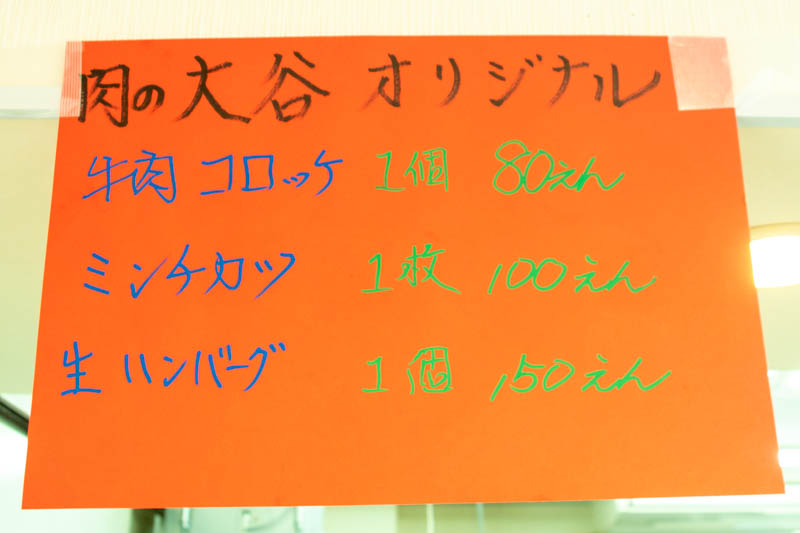 肉の大谷 オリジナル
牛肉コロッケ 1個 80えん
ミンチカツ 1枚 100えん
生ハンバーグ 1個 150えん